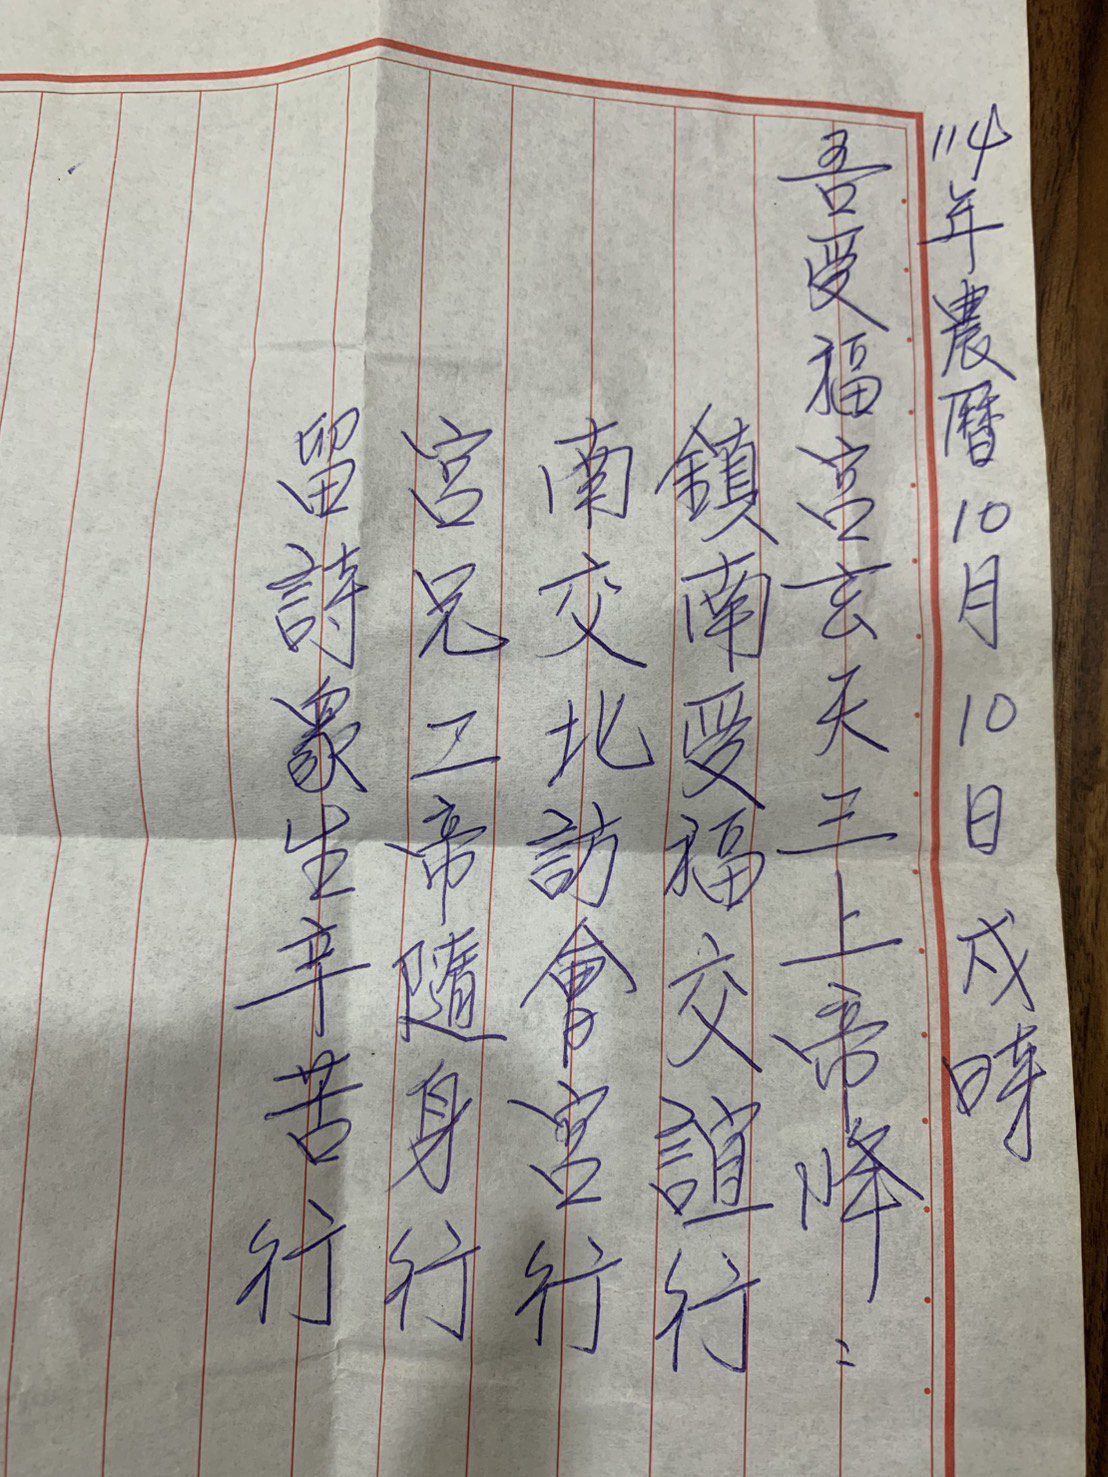 114年農曆10月10日戌時
吾受福宮玄天三上帝降:
鎮南受福交誼行
南交北訪會宮行
宮兄二帝隨身行
留詩眾生辛苦行